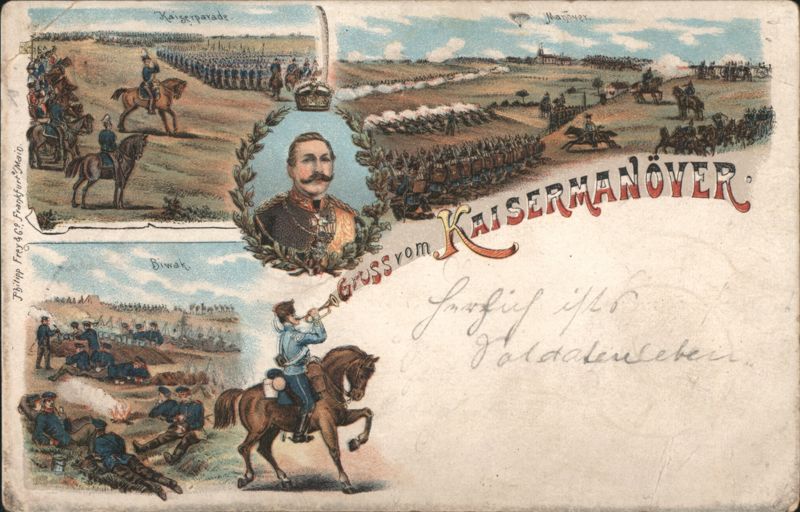 Kaiserparade
Manöver.
Philipp Frey & Co. Frankfurt a/Main.
Gruss vom KAISERMANÖVER.
Biwak
Herrlich ists
Soldatenleben.